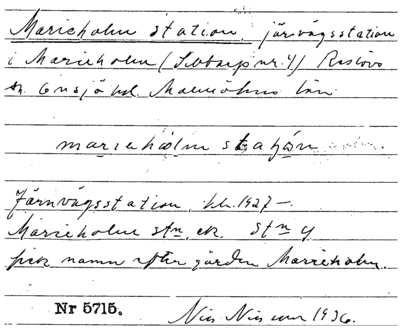 Marieholm station, järnvägsstation
i Marieholm (Sibbarp nr. 4) Reslövs
sn. Onsjö hd. Malmöhus län
marieholm stașon
Järnvägsstation, bl. 1927 —
Marieholm stn, ek. Stn y
fick namn efter gården Marieholm.
Nr 5715. Nils Nilsson 1936.